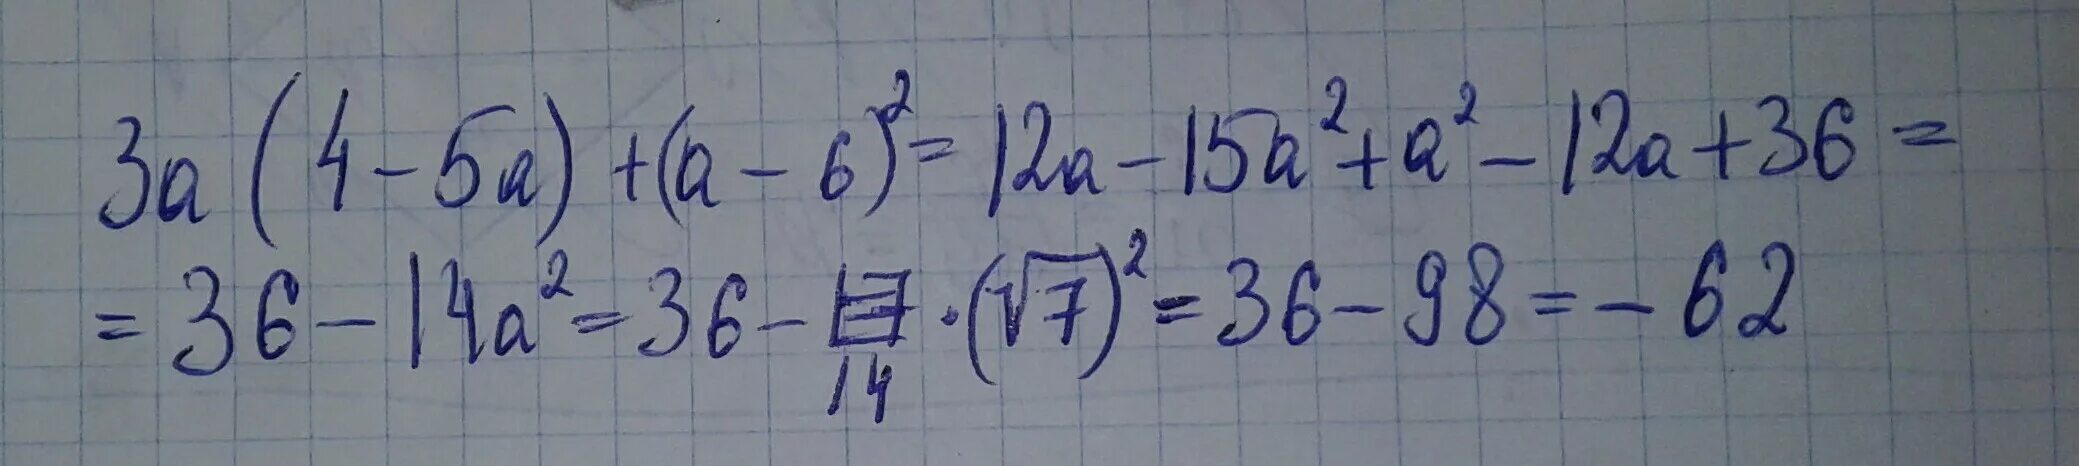 3a(4-5a)+(a-6)²=12a-15a²+a²-12a+36=
=36-14a²=36-14·(√7)²=36-98=-62